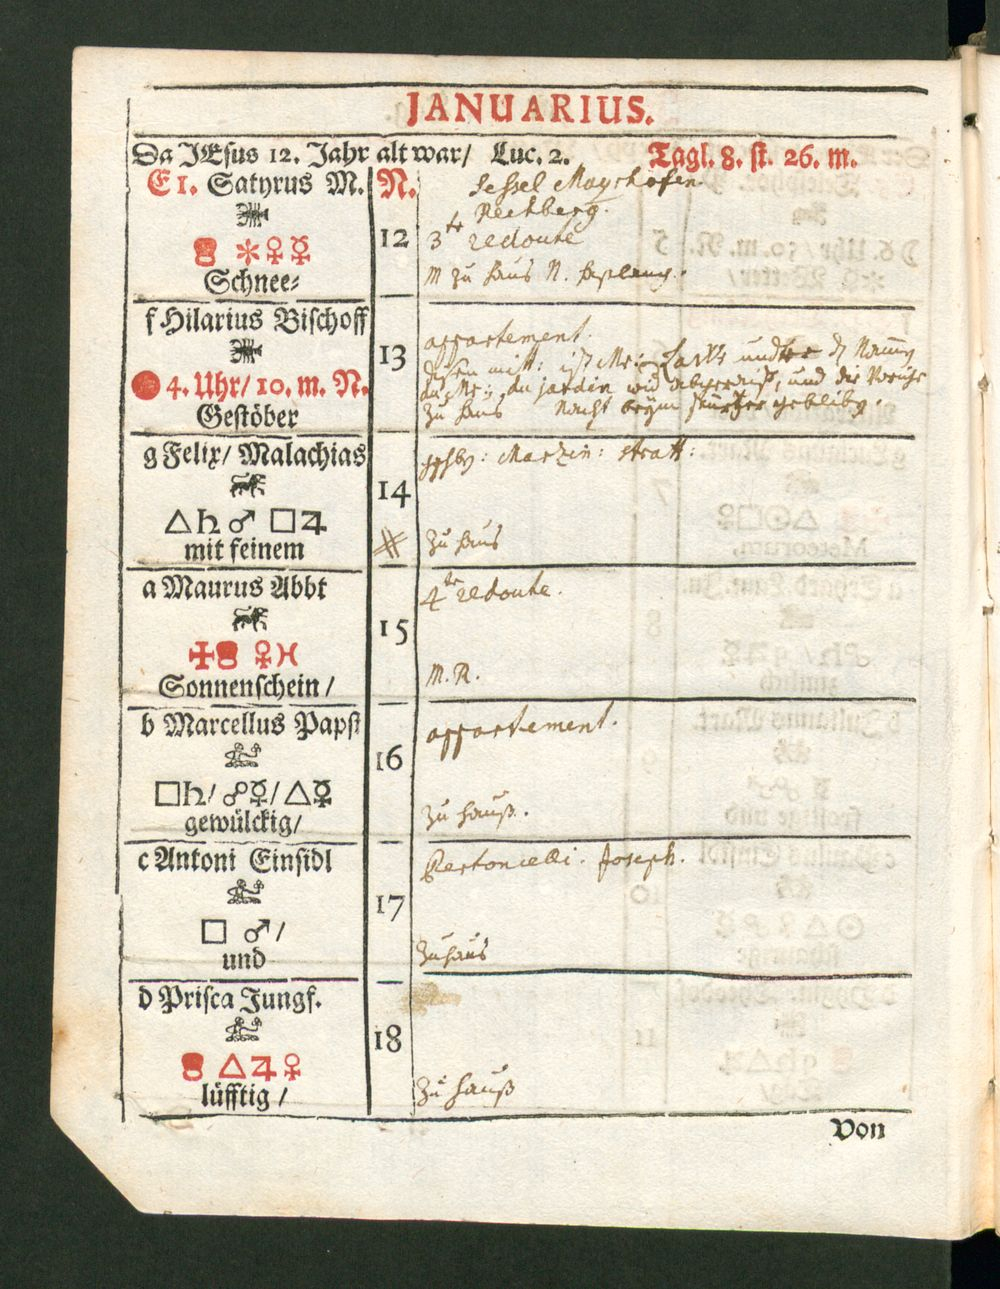 JANUARIUS.
Da JEsus 12. Jahr alt war/ Luc. 2. Tagl. 8. st. 26. m.
E 1. Satyrus M. N.
☿ ✻ ♀ ☿
Schnee⸗
12
Sessel Mayrhofen
Rechberg.
3te redoute
M zu haus N.
f Hilarius Bischoff
4. Uhr/ 10. m. N.
Gestöber
13
appartement.
und
und die
zu haus Nacht beym
g Felix/ Malachias
△ ♄ ♂ □ ♃
mit feinem
14
Martin:
zu haus
a Maurus Abbt
♀ ♓
Sonnenschein/
15
4te redoute.
M. R.
b Marcellus Papst
□ ♄/ ☍ ☿/ △ ☿
gewülckig/
16
appartement.
zu hauß.
c Antoni Einsidl
□ ♂/
und
17
Bertonielli. Joseph.
zu haus
d Prisca Jungf.
△ ♃ ♀
lüfftig/
18
zu hauß
Von